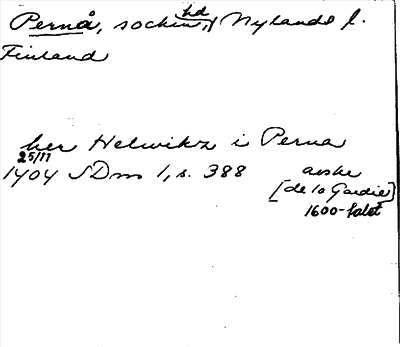 Pernå, socken, hd, Nylands l.
Finland
her Helwikz i Perna
25/11
1404 SDm 1, s. 388 avskr
[de la Gardie]
1600-talet